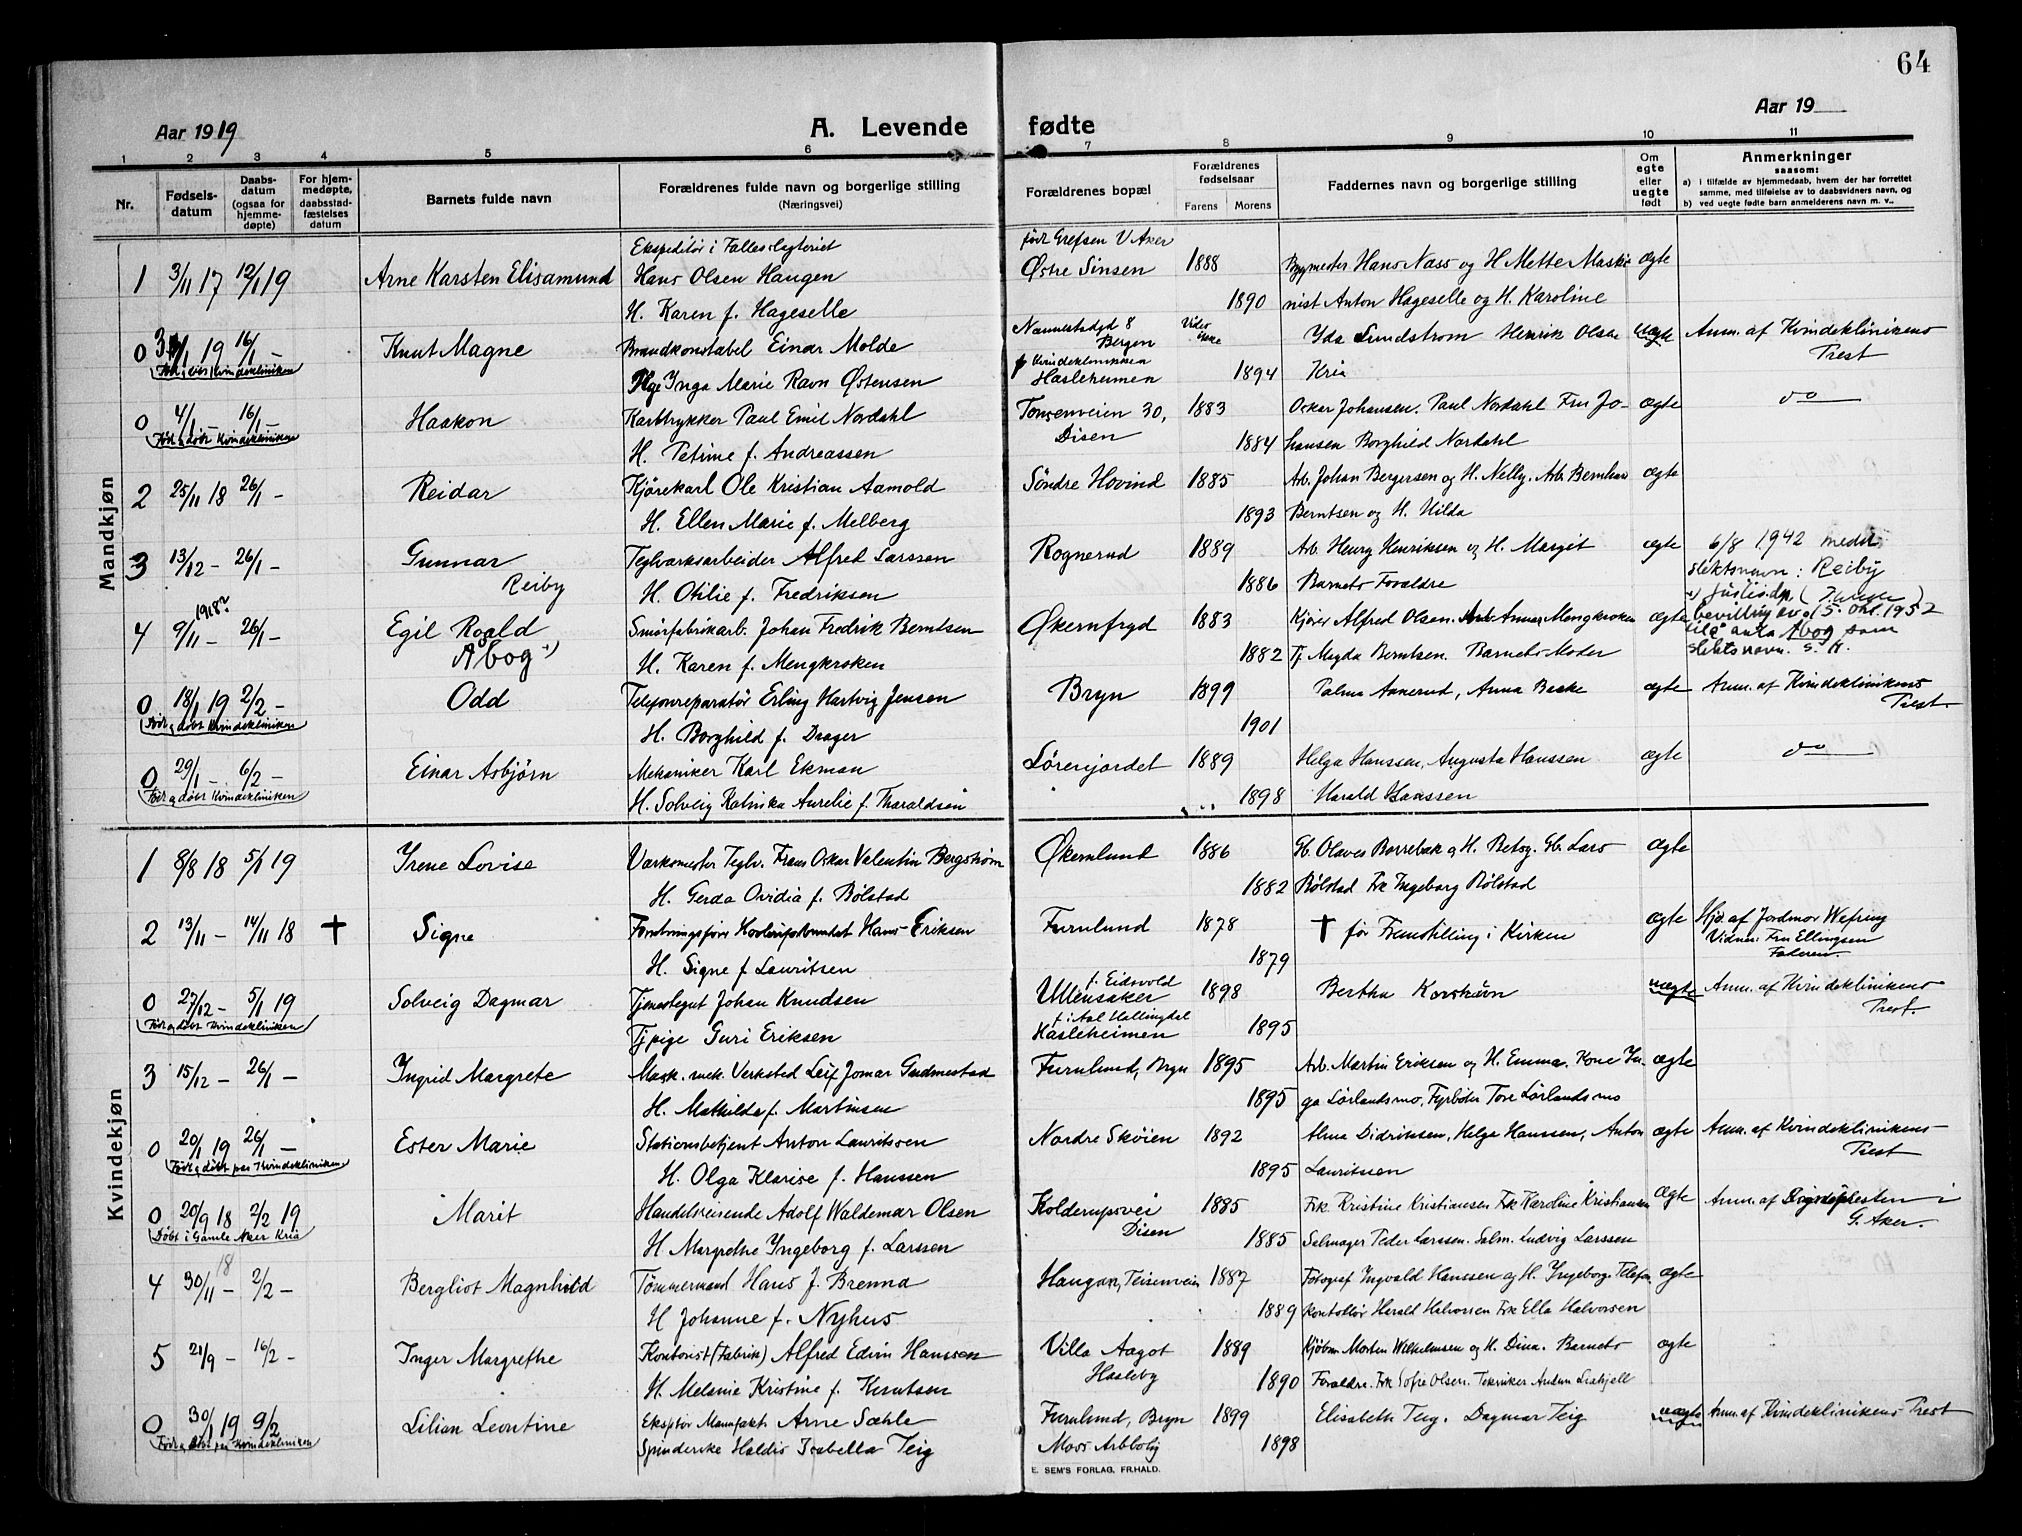 64
Aar 1919
A. Levende fødte
Aar 19
1 2 3 4 5 6 7 8 9 10 11
Nr.
Fødsels-
datum
Daabs-
datum
(ogsaa for
hjemme-
døpte)
For hjem-
medøpte,
daabsstad-
fæstelses
datum
Barnets fulde navn
Forældrenes fulde navn og borgerlige stilling
(Næringsvei)
Forældrenes bopæl
Forældrenes
fødselsaar
Farens Morens
Faddernes navn og borgerlige stilling
Om
egte
eller
uegte
født
Anmerkninger
saasom:
a) i tilfælde av hjemmedaab, hvem der har forrettet
samme, med tilføielse av to daabsvidners navn, og
b) ved uegte fødte barn anmelderens navn m. v..
Mandkjøn
Ekspeditør i Fællesslagteriet født Grefsen V Aker
1 3/11 17 12/1 19 Arne Karsten Elisamund Hans Olsen Haugen Østre Sinsen 1888 Bygmester Hans Næss og H Mette Maski- ægte
H. Karen f. Hageselle 1890 nist Anton Hageselle og H. Karoline
0 3/1 19 16/1 – Knut Magne Brandkonstabel Einar Molde Nannestadgd 8 Bergen Vides ikke Yda Lundstrøm Henrik Olsen uægte Anm. af Kvindeklinikens Prest
Født og døbt Kvindekliniken Pge Inga Marie Ravn Østensen f Kvindekliniken Hasleheimen 1894 Kria
0 4/1 – 16/1 – Haakon Karttrykker Paul Emil Nordahl Tonsenveien 30, 1883 Oskar Johansen. Paul Nordahl Fru Jo- ægte do
Født og døbt Kvindekliniken H. Petrine f. Andreassen Disen 1884 hansen Borghild Nordahl
2 25/11 18 26/1 – Reidar Kjørekarl Ole Kristian Aamold Søndre Hovind 1885 Arb. Johan Bergersen og H. Nelly. Arb. Bernhard ægte
H. Ellen Marie f. Melberg 1893 Berntsen og H. Hilda
3 13/12 – 26/1 – Gunnar Teglværksarbeider Alfred Larssen Rognerud 1889 Arb. Henry Henriksen og H. Margit ægte 6/8 1942 medd.
Reiby H. Otilie f. Fredriksen 1886 Barnets Forældre slektsnavn: Reiby
1918?
4 9/11 – 26/1 – Egil Roald Smørfabrikarb. Johan Fredrik Berntsen Økernfryd 1883 Kjører Alfred Olsen. Arb. Anna Mengkroken ægte bevilling av 15. okt. 1952
Åbog +) H. Karen f. Mengkroken 1882 Tj. Magda Berntsen. Barnets Moder til å anta Åbog som
slektsnavn. S. H.
0 18/1 19 2/2 – Odd Telefonreparatør Erling Hartvig Jensen Bryn 1899 Palma Aanerud, Anna Bakke ægte Anm. af Kvindeklinikens Prest
Født og døbt Kvindekliniken H. Borghild f. Drager 1901
0 29/1 – 6/2 – Einar Asbjørn Mekaniker Karl Ekman Lørenjordet 1889 Helga Hanssen, Augusta Hanssen ægte do
Født og døbt Kvindekliniken H. Solveig Katinka Aurelie f. Tharaldsen 1898 Harald Hanssen
Kvindekjøn
1 8/8 18 5/1 19 Irene Lovise Værksmester Teglv. Frans Oskar Valentin Bergstrøm Økernlund 1886 Gb. Olaves Borrebæk og H. Betsy. Gb. Lars ægte
H. Gerda Ovidia f. Bølstad 1882 Bølstad Frk Ingeborg Bølstad
2 13/11 – 14/11 18 † Signe Hans Eriksen Furulund 1878 † før Fremstilling i Kirken ægte Hjd. af Jordmor Wefring
H. Signe f Lauritsen 1879 Vidner: Fru Ellingsen
Faderen.
0 27/12 – 5/1 19 Solveig Dagmar Tjenestegut Johan Knudsen f. Eidsvold Ullensaker 1898 Bertha Korshavn uægte Anm. af Kvindeklinikens Prest.
Født og døbt Kvindekliniken Tjpige Guri Eriksen f. i Aal Hallingdal Hasleheimen 1895
3 15/12 – 26/1 – Ingrid Margrete Mask. mek. Verksted Leif Jomar Gudmestad Furulund, Bryn 1895 Arb. Martin Eriksen og H. Emma. Kone In- ægte
H. Mathilda f. Martinsen 1895 ga Lørlandsmo, Fyrbøter Tore Lørlandsmo
0 20/1 19 26/1 – Ester Marie Stationsbetjent Anton Lauritssen Nordre Skøien 1892 Alma Didriksen, Helga Hanssen, Anton ægte Anm. af Kvindeklinikens Prest
Født og døbt paa Kvindekliniken H. Olga Klarise f. Hanssen 1895 Lauritssen
0 20/9 18 2/2 19 Marit Handelsreisende Adolf Waldemar Olsen Kolderupsvei 1885 Frk. Kristine Kristiansen Frk Karoline Kristiansen ægte Anm. af Sognepresten i
Døbt i Gamle Aker Kria H Margrethe Ingeborg f. Larssen Disen 1885 Salmager Peder Larssen. Salm. Ludvig Larssen G. Aker.
18
4 30/11 – 2/2 – Bergliot Magnhild Tømmermand Hans J. Brenna Haugan, Teisenveien 1887 Fotograf Ingvald Hanssen og H. Ingeborg. Telefon- ægte
H Johanne f. Nyhus 1889 kontrollør Harald Halvorsen Frk Ella Halvorsen
5 21/9 – 16/2 – Inger Margrethe Kontorist (Fabrik) Alfred Edvin Hanssen Villa Aagot 1889 Kjøbm Morten Wilhelmsen og H. Dina. Barnets ægte
H. Melanie Kristine f. Knutsen Hasleby 1890 Forældre. Frk Sofie Olsen. Tekniker
0 30/1 19 9/2 Lilian Leontine Ekspeditør Manufakt. Arne Sæhle Furulund, Bryn 1899 Elisabeth Teig. Dagmar Teig uægte Anm. af Kvindeklinikens Prest
Født og døbt paa Kvindekliniken Spinderske Haldis Isabella Teig Moss Arbbolig 1898
E. SEM'S FORLAG, FR.HALD.